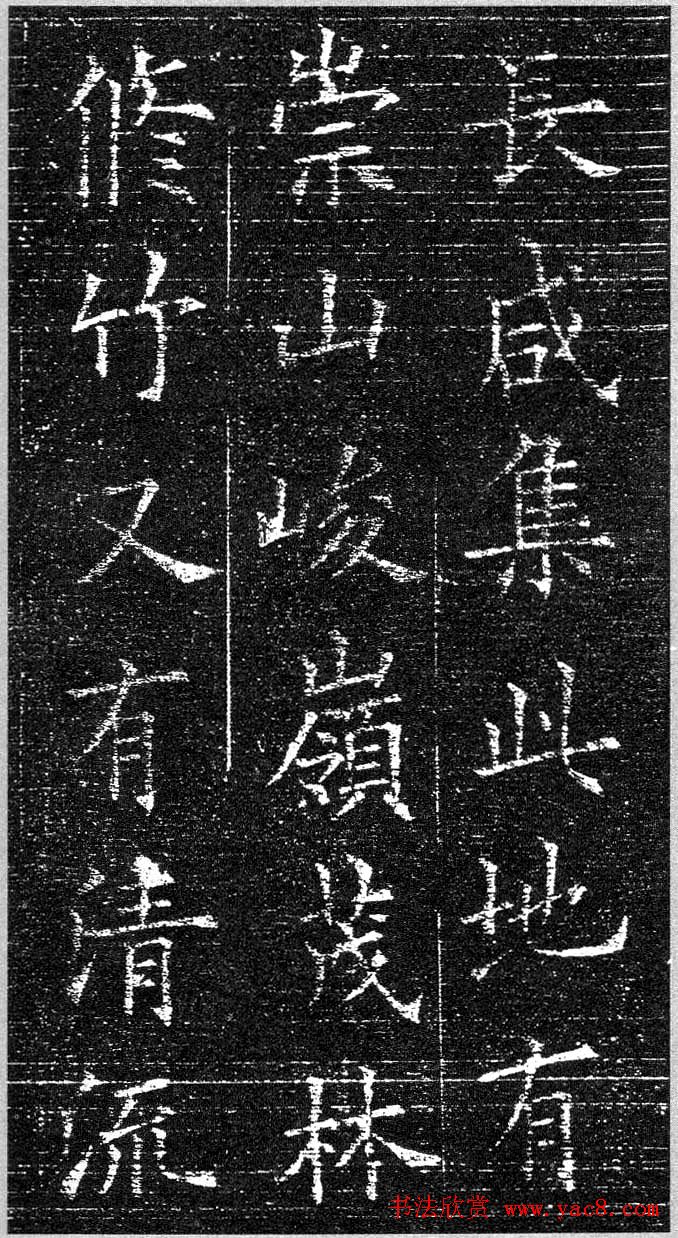 長咸集此地有
崇山峻嶺茂林
脩竹又有清流
书法欣赏 www.yac8.com